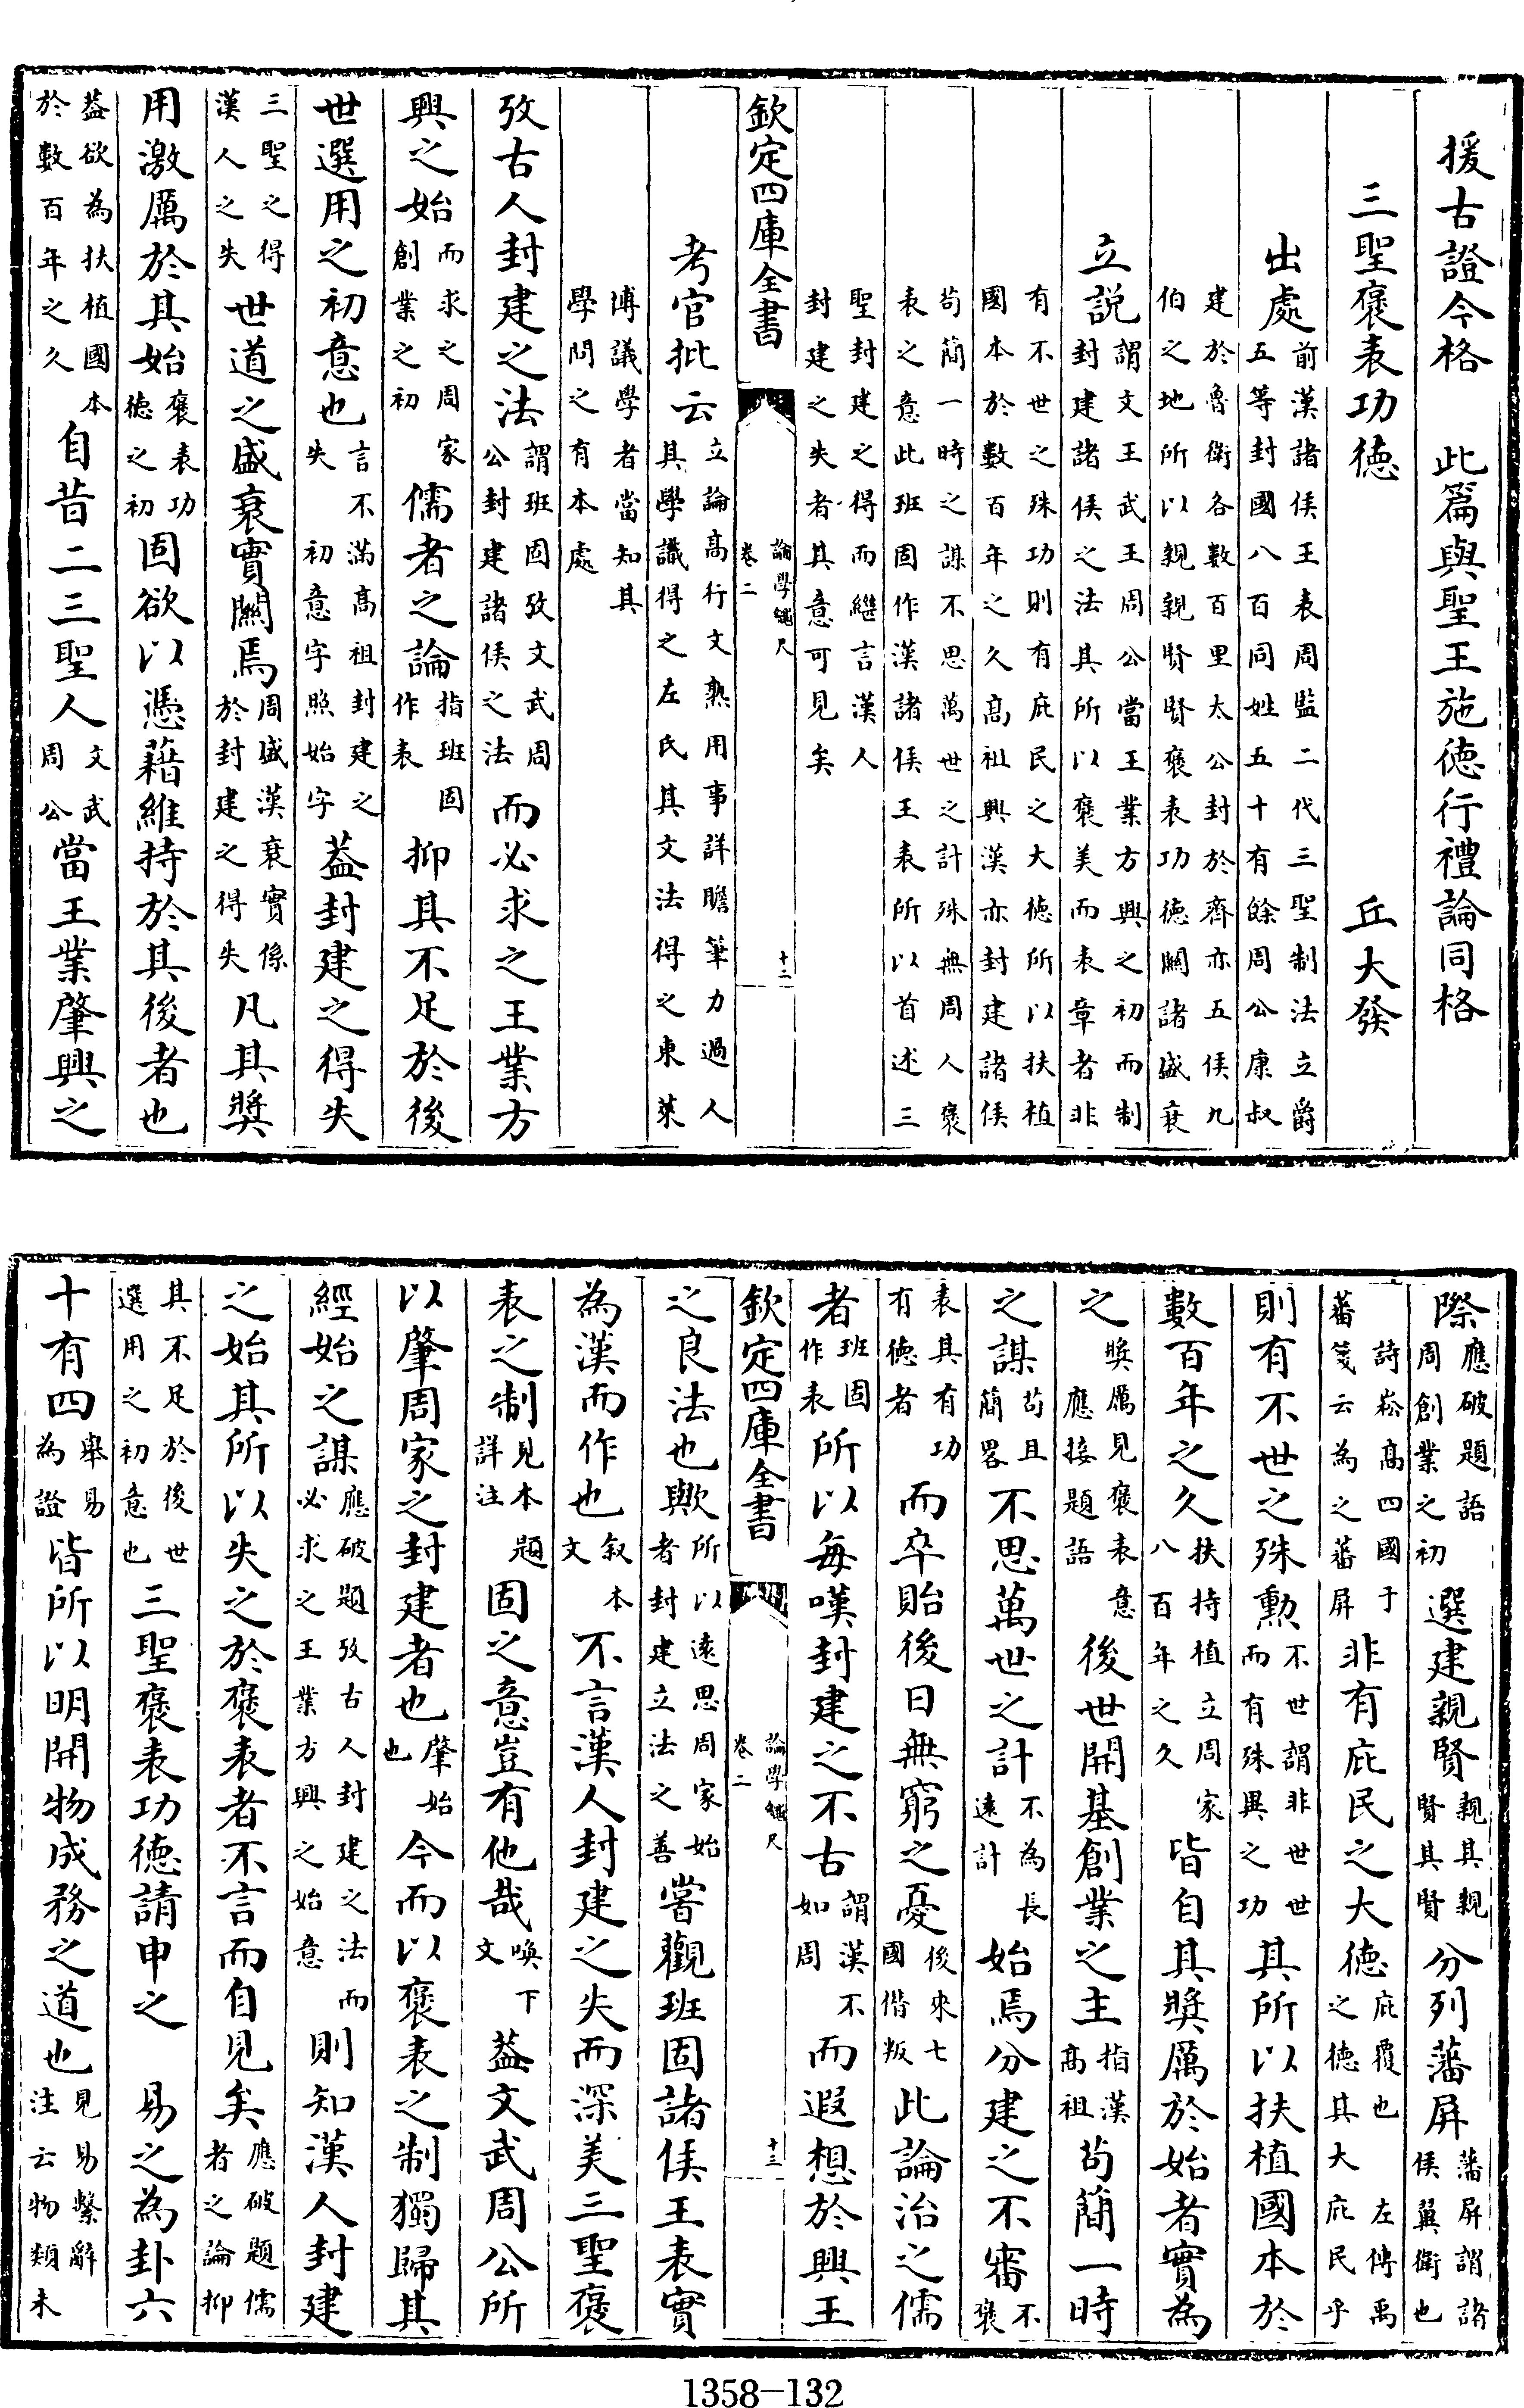 援古證今格　此篇與聖王施德行禮論同格
三聖褒表功德　丘大發
出處前漢諸侯王表周監二代三聖制法立爵五等封國八百同姓五十有餘周公康叔
建於魯衛各數百里太公封於齊亦五侯九伯之地所以親親賢賢褒表功德關諸盛衰
立說謂文王武王周公當王業方興之初而制封建諸侯之法其所以褒美而表章者非
有不世之殊功則有庇民之大德所以扶植國本於數百年之久高祖興漢亦封建諸侯
苟簡一時之謀不思萬世之計殊無周人褒表之意此班固作漢諸侯王表所以首述三
聖封建之得而繼言漢人封建之失者其意可見矣
欽定四庫全書　論學繩尺　卷二　十二
考官批云立論高行文熟用事詳贍筆力過人其學識得之左氏其文法得之東萊
博議學者當知其學問之有本處
攷古人封建之法謂班固攷文武周公封建諸侯之法而必求之王業方
興之始而求之周家創業之初儒者之論指班固作表抑其不足於後
世選用之初意也言不滿高祖封建之失初意字照始字蓋封建之得失
三聖之得漢人之失世道之盛衰實關焉周盛漢衰實係於封建之得失凡其獎
用激厲於其始褒表功德之初固欲以憑藉維持於其後者也
蓋欲為扶植國本於數百年之久自昔二三聖人文武周公當王業肇興之
際應破題語周創業之初選建親賢親其親賢其賢分列藩屏藩屏謂諸侯翼衛也
詩崧高四國于蕃箋云為之蕃屏非有庇民之大德庇覆也之德其大左傳禹庇民乎
則有不世之殊勲不世謂非世世而有殊異之功其所以扶植國本於
數百年之久扶持植立周家八百年之久皆自其獎厲於始者實為
之獎厲見褒表意應接題語後世開基創業之主指漢高祖苟簡一時
之謀苟且簡畧不思萬世之計不為長遠計始焉分建之不審不褒
表其有功有德者而卒貽後日無窮之憂後來七國僭叛此論治之儒
者班固作表所以每嘆封建之不古謂漢不如周而遐想於興王
欽定四庫全書　論學繩尺　卷二　十三
之良法也歟所以遠思周家始者封建立法之善嘗觀班固諸侯王表實
為漢而作也叙本文不言漢人封建之失而深美三聖褒
表之制見本題詳注固之意豈有他哉喚下文蓋文武周公所
以肇周家之封建者也肇始也今而以褒表之制獨歸其
經始之謀應破題攷古人封建之法而必求之王業方興之始意則知漢人封建
之始其所以失之於褒表者不言而自見矣應破題儒者之論抑
其不足於後世選用之初意也三聖褒表功德請申之　易之為卦六
十有四舉易為證皆所以明開物成務之道也見易繫辭注云物類未
1358-132